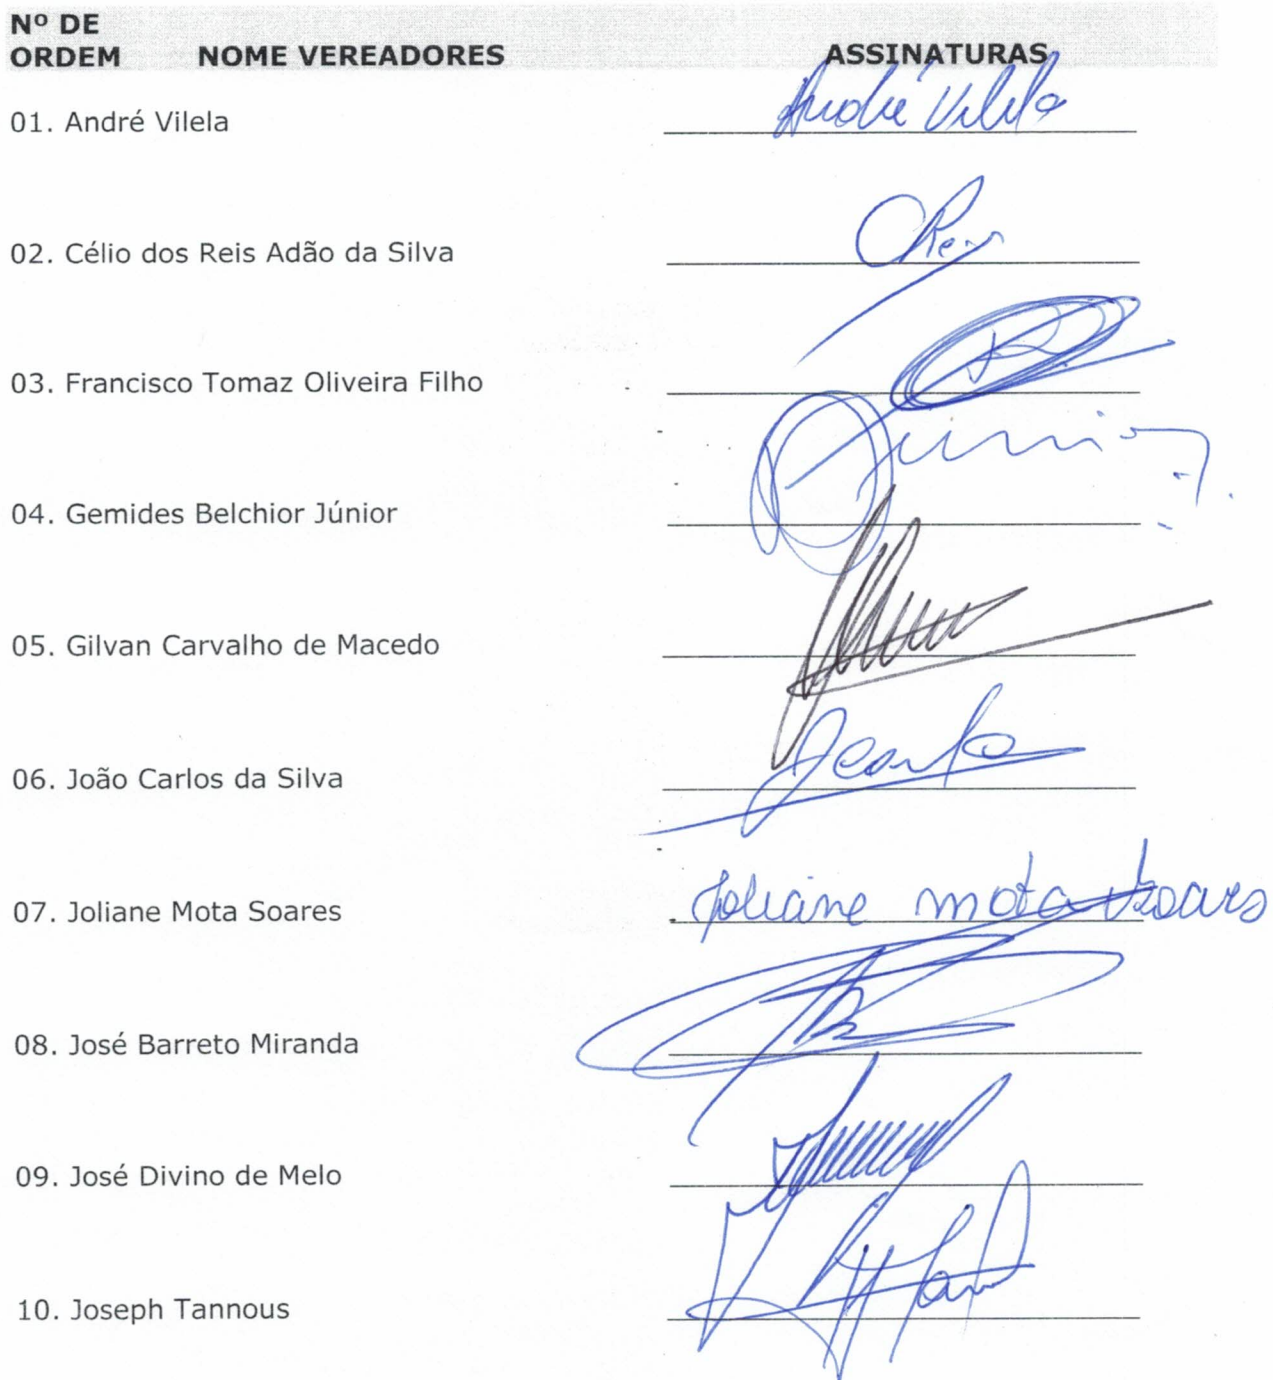 Nº DE
ORDEM NOME VEREADORES ASSINATURAS
01. André Vilela André Vilela
02. Célio dos Reis Adão da Silva CReis
03. Francisco Tomaz Oliveira Filho
04. Gemides Belchior Júnior Júnior
05. Gilvan Carvalho de Macedo
06. João Carlos da Silva
07. Joliane Mota Soares Joliane mota Soares
08. José Barreto Miranda
09. José Divino de Melo
10. Joseph Tannous